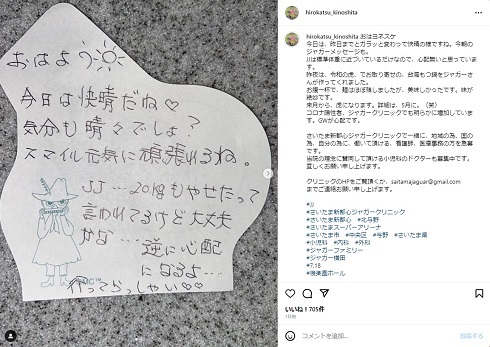 おはよう
今日は快晴だね♡
気分も晴々でしょ?
スマイル元気に頑張れるね。
JJ...20kgもやせたって
言われてるけど大丈夫
かな......逆に心配
になるよ...
行ってらっしゃい♡♡
hirokatsu_kinoshita
hirokatsu_kinoshita おはヨネスケ
今日は、昨日までとガラッと変わって快晴の様ですね。今朝の
ジャガーメッセージも。
JJは標準体重に近づいているだけなので、心配無いと思ってい
ます。
昨夜は、令和の虎、でお取り寄せの、台湾もつ鍋をジャガーさ
んが作ってくれました。
お腹一杯で、麺はほぼ残しましたが、美味しかったです。味が
絶妙です。
来月から、虎になります。詳細は、5月に。(笑)
コロナ陽性者、ジャガークリニックでも明らかに増加しています。
GWが心配です。
さいたま新都心ジャガークリニックで一緒に、地域の為、国の
為、自分の為に、働いて頂ける、看護師、医療事務の方を急募
です。
当院の理念に賛同して頂ける小児科のドクターも募集中です。
宜しくお願い申し上げます。
クリニックのHPをご覧頂くか、saitamajaguar@gmail.com
までご連絡お願い申し上げます。
#JJ
#さいたま新都心ジャガークリニック
#さいたま新都心 #北与野
#さいたまスーパーアリーナ
#さいたま市 #中央区 #与野 #さいたま県
#小児科 #内科 #外科
#ジャガーファミリー
#ジャガー横田
#7.18
#後楽園ホール
いいね!705件
1日前
コメントを追加...
投稿する